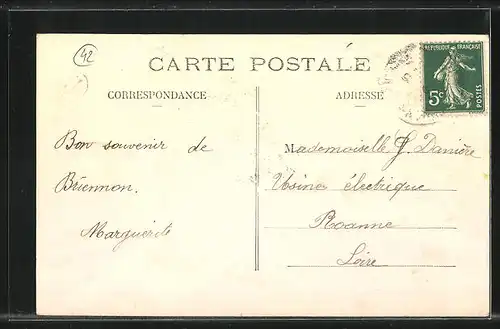 42
CARTE POSTALE
CORRESPONDANCE
ADRESSE
RÉPUBLIQUE FRANÇAISE
5c
POSTES
Bon souvenir de
Briennon.
Marguerite
Mademoiselle J. Danière
Usine électrique
Roanne
Loire